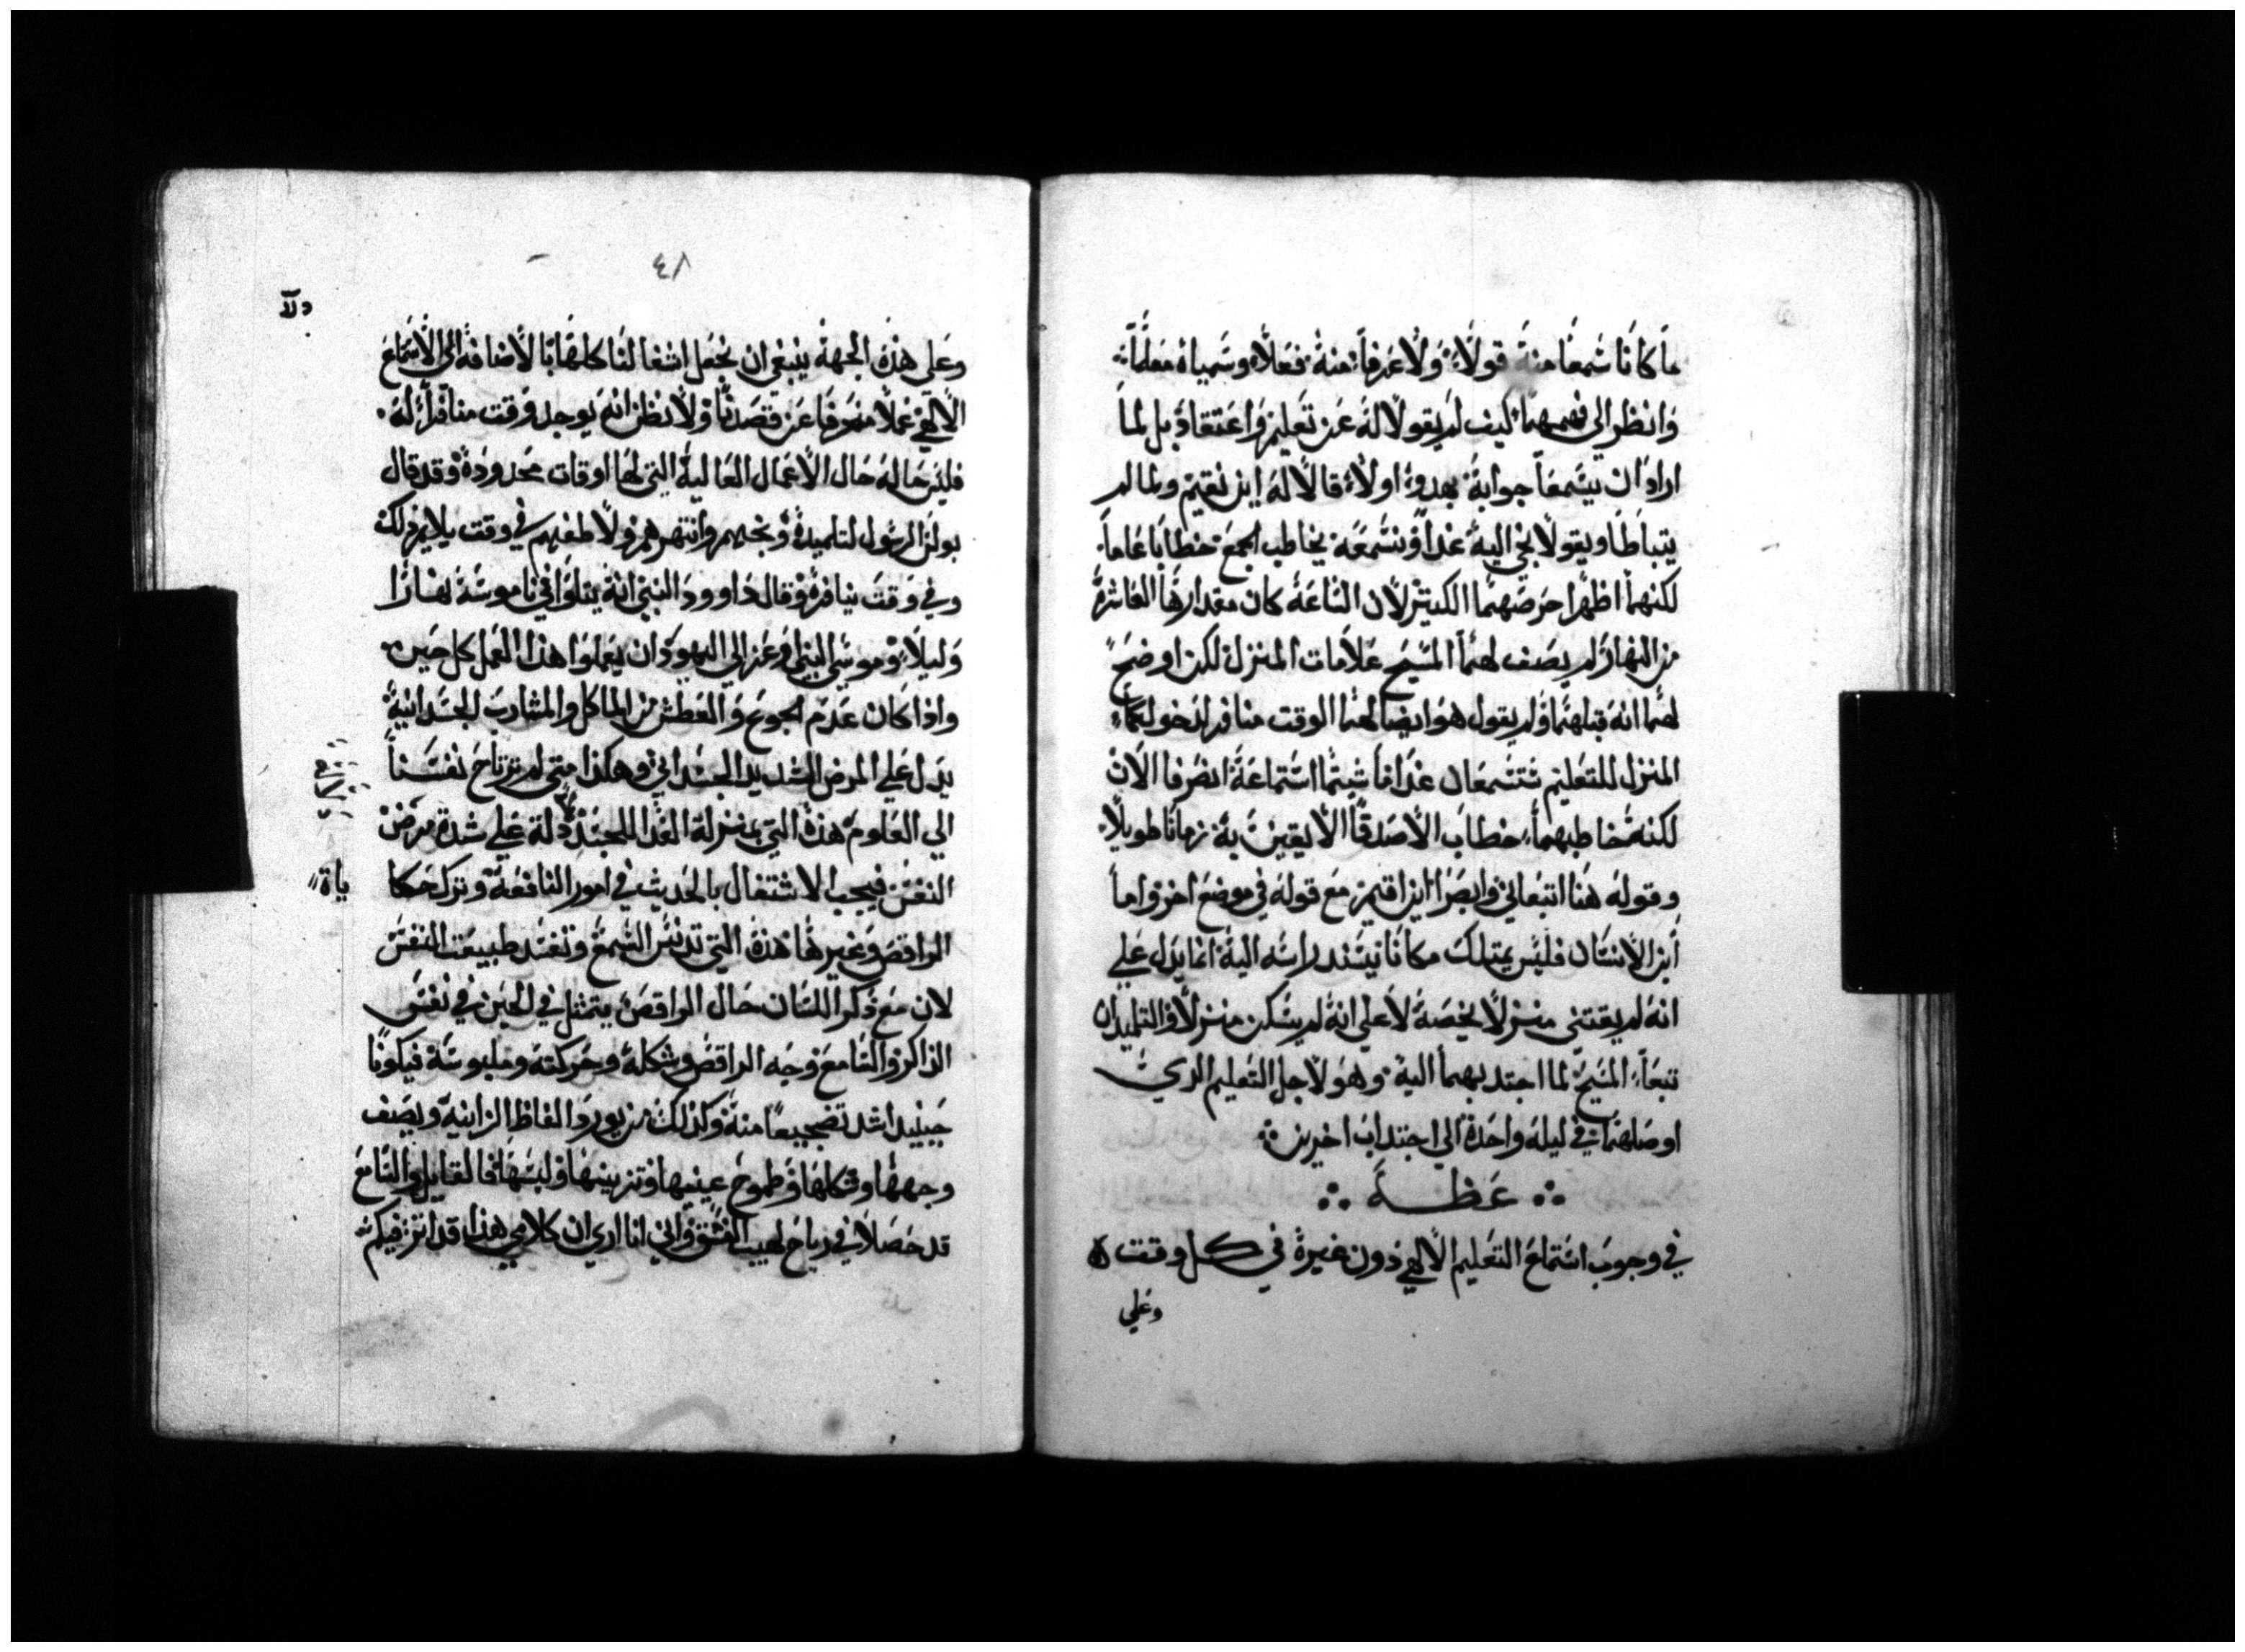 ما كانا سمعا منه قولاً ولا عرفا منه فعلاً وسمياه معلماً
وانظر الي فهمهما كيف لم يقولا له عن تعليم واعتقاد بل لما
ارادا ان يسمعا جوابه بهدوء اولاً قالا له اين تقيم ولما لم
يتباطا ويقولا نجي اليه غداً ونسمعه يخاطب الجمع خطابا عاما
لكنهما اظهرا حرصهما الكبير لان الساعة كان مقدارها العاشرة
من النهار لم يصف لهما المسيح علامات المنزل لكن اوضح
لهما انه قبلهما ولم يقول هو ايضا لهما الوقت منافر لدخولكما
المنزل للتعليم ستسمعان غدا ما شيتما استماعه انصرفا الان
لكنه خاطبهما خطاب الاصدقا الايقين به زمانا طويلاً
وقوله هنا اتبعاني وابصرا اين اقيم مع قوله في موضع اخر واما
ابن الانسان فليس يمتلك مكانا يسند راسه اليه انما يدل علي
انه لم يقتني منزلاً يخصه لا علي انه لم يسكن منزلاً والتلميدان
تبعا المسيح لما اجتدبهما اليه وهو لاجل التعليم الدي
اوصلهما في ليلة واحدة الي اجتداب اخرين
عظة
في وجوب استماع التعليم الالهي دون غيره في كل وقت
وعلي
٤٨
وعلي هذه الجهة ينبغي ان نجعل اشغالنا كلها بالاضافة الي الاستماع
الالهي عملا منحرفا عن قصدنا ولا نظن انه يوجد وقت منافراً له
فليس حاله حال الاعمال العالية التي لها اوقات محدودة وقد قال
بولس الرسول لتلميده وبخهم وانتهرهم ولاطفهم في وقت يلايم دلك
وفي وقت ينافره وقال داوود النبي انه يتلوا في ناموسه نهاراً
وليلاً وموسي النبي اوعز الي اليهود ان يعملوا هذا العمل كل حين
واذا كان عدم الجوع والعطش من الماكل والمشارب الجسدانية
يدل علي المرض الشديد الجسداني وهكذا متي لم ترتاح نفسنا
الي العلوم هذه التي بمنزلة الغدا للجسد دلة علي شدة مرض
النفس فيجب الاشتغال بالحديث في امور النافعة وترك حكا
ياة
الراقص وغيرها هذه التي تدنس السمع وتفسد طبيعت النفس
لان مع ذكر اللسان حال الراقص يتمثل في الحين في نفس
الذاكر والسامع وجه الراقص وشكله وحركته وملبوسه فيكونا
حينيد اشد تضجيعا منه وكذلك من يورد الفاظ الزانية ويصف
وجهها وشكلها وطموح عينيها وتزيينها ولبسها فالقايل والسامع
قد حصلا في رياح لهيب الفسق واني انا اري ان كلامي هذا قد اثر فيكم